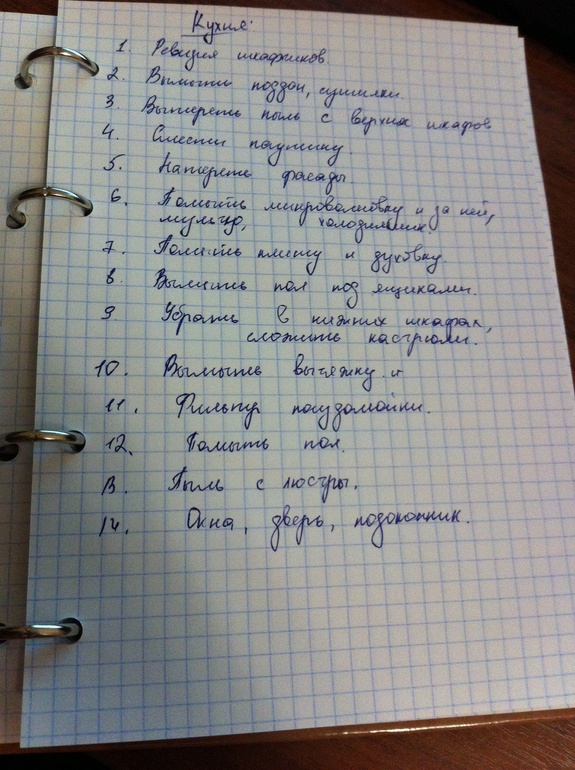 Кухня:
1. Ревизия шкафчиков.
2. Вымыть поддон, сушилки.
3. Вытереть пыль с верхних шкафов
4. Смести паутину.
5. Натереть фасады.
6. Помыть микроволновку и за ней,
мульту, холодильник.
7. Помыть плиту и духовку.
8. Вымыть пол под ящиками.
9. Убрать в нижних шкафах,
сложить кастрюли.
10. Вымыть вытяжку и
11. Фильтр посудомойки.
12. Помыть пол.
13. Пыль с люстры.
14. Окна, дверь, подоконник.